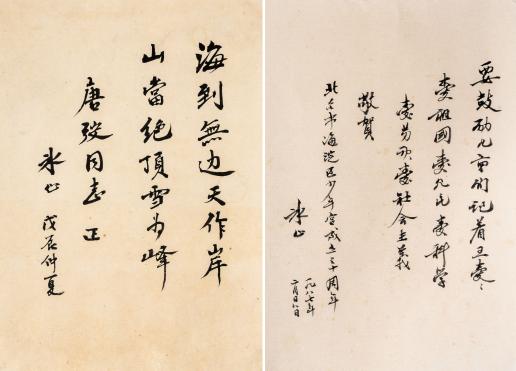 海到無边天作岸
山當絕頂雪为峰
唐弢同志 正
冰心 戊辰仲夏
要鼓励儿童们记着五愛：
愛祖國愛人民愛科学
愛劳动愛社会主义
敬贺
北京市海淀区少年宫成立三十周年
冰心
一九八七年
二月日